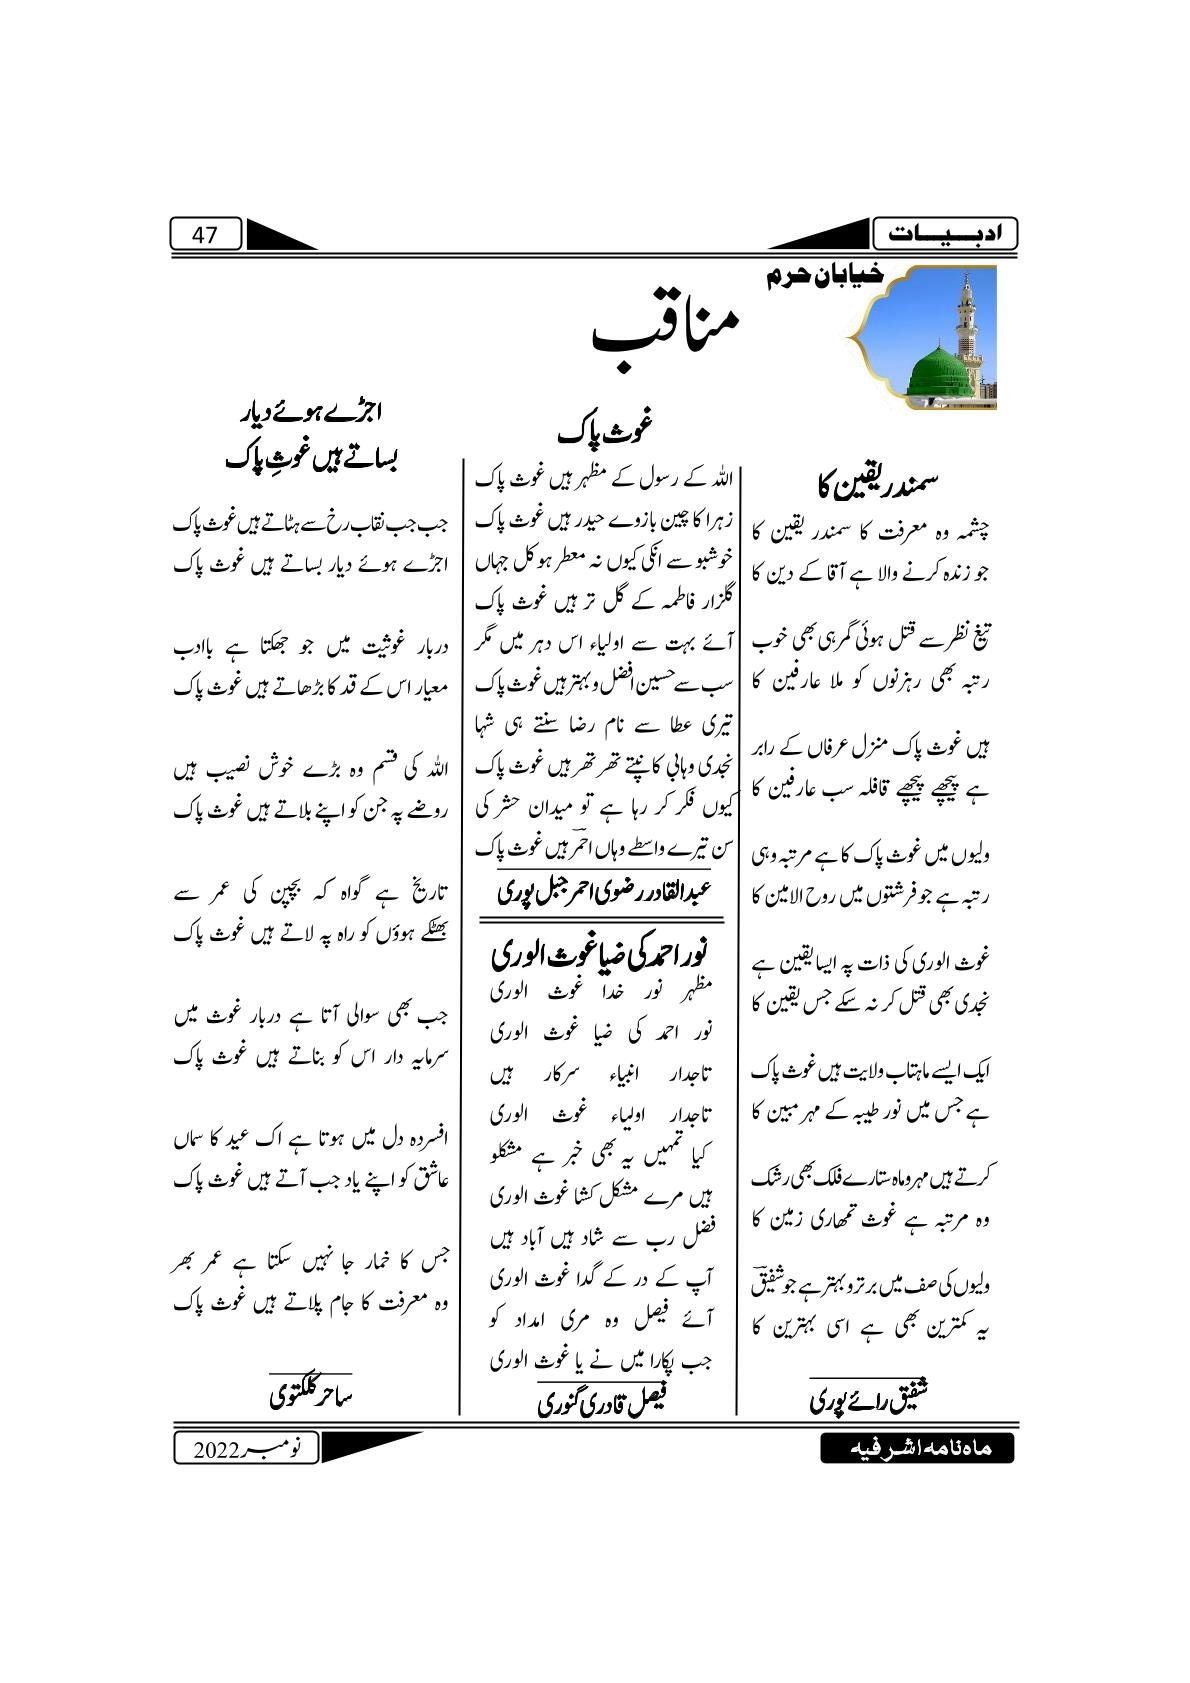 ادبیات
47
خیابان حرم
مناقب
سمندر یقین کا
چشمہ وہ معرفت کا سمندر یقین کا
جو زندہ کرنے والا ہے آقا کے دین کا
تیغ نظر سے قتل ہوئی گمرہی بھی خوب
رتبہ بھی رہزنوں کو ملا عارفین کا
ہیں غوث پاک منزل عرفاں کے رابر
ہے پیچھے پیچھے قافلہ سب عارفین کا
ولیوں میں غوث پاک کا ہے مرتبہ وہی
رتبہ ہے جو فرشتوں میں روح الامین کا
غوث الوری کی ذات پہ ایسا یقین ہے
نجدی بھی قتل کر نہ سکے جس یقین کا
ایک ایسے ماہتاب ولایت ہیں غوث پاک
ہے جس میں نور طیبہ کے مہر مبین کا
کرتے ہیں مہر و ماہ ستارے فلک بھی رشک
وہ مرتبہ ہے غوث تمھاری زمین کا
ولیوں کی صف میں برتر و بہتر ہے جو شفیقؔ
یہ کمترین بھی ہے اسی بہترین کا
شفیق رائے پوری
غوث پاک
اللہ کے رسول کے مظہر ہیں غوث پاک
زہرا کا چین بازوے حیدر ہیں غوث پاک
خوشبو سے انکی کیوں نہ معطر ہو کل جہاں
گلزار فاطمہ کے گل تر ہیں غوث پاک
آئے بہت سے اولیاء اس دہر میں مگر
سب سے حسین افضل و بہتر ہیں غوث پاک
تیری عطا سے نام رضا سنتے ہی شہا
نجدی وہابی کانپتے تھر تھر ہیں غوث پاک
کیوں فکر کر رہا ہے تو میدان حشر کی
سن تیرے واسطے وہاں احمرؔ ہیں غوث پاک
عبدالقادر رضوی احمر جبل پوری
نور احمد کی ضیا غوث الوری
مظہر نور خدا غوث الوری
نور احمد کی ضیا غوث الوری
تاجدار انبیاء سرکار ہیں
تاجدار اولیاء غوث الوری
کیا تمہیں یہ بھی خبر ہے مشکلو
ہیں مرے مشکل کشا غوث الوری
فضل رب سے شاد ہیں آباد ہیں
آپ کے در کے گدا غوث الوری
آئے فیصل وہ مری امداد کو
جب پکارا میں نے یا غوث الوری
فیصل قادری گنوری
اجڑے ہوئے دیار
بساتے ہیں غوثِ پاک
جب جب نقاب رخ سے ہٹاتے ہیں غوث پاک
اجڑے ہوئے دیار بساتے ہیں غوث پاک
دربار غوثیت میں جو جھکتا ہے باادب
معیار اس کے قد کا بڑھاتے ہیں غوث پاک
اللہ کی قسم وہ بڑے خوش نصیب ہیں
روضے پہ جن کو اپنے بلاتے ہیں غوث پاک
تاریخ ہے گواہ کہ بچپن کی عمر سے
بھٹکے ہوؤں کو راہ پہ لاتے ہیں غوث پاک
جب بھی سوالی آتا ہے دربار غوث میں
سرمایہ دار اس کو بناتے ہیں غوث پاک
افسردہ دل میں ہوتا ہے اک عید کا سماں
عاشق کو اپنے یاد جب آتے ہیں غوث پاک
جس کا خمار جا نہیں سکتا ہے عمر بھر
وہ معرفت کا جام پلاتے ہیں غوث پاک
ساحر کلکتوی
ماہ نامہ اشرفیہ
نومبر 2022